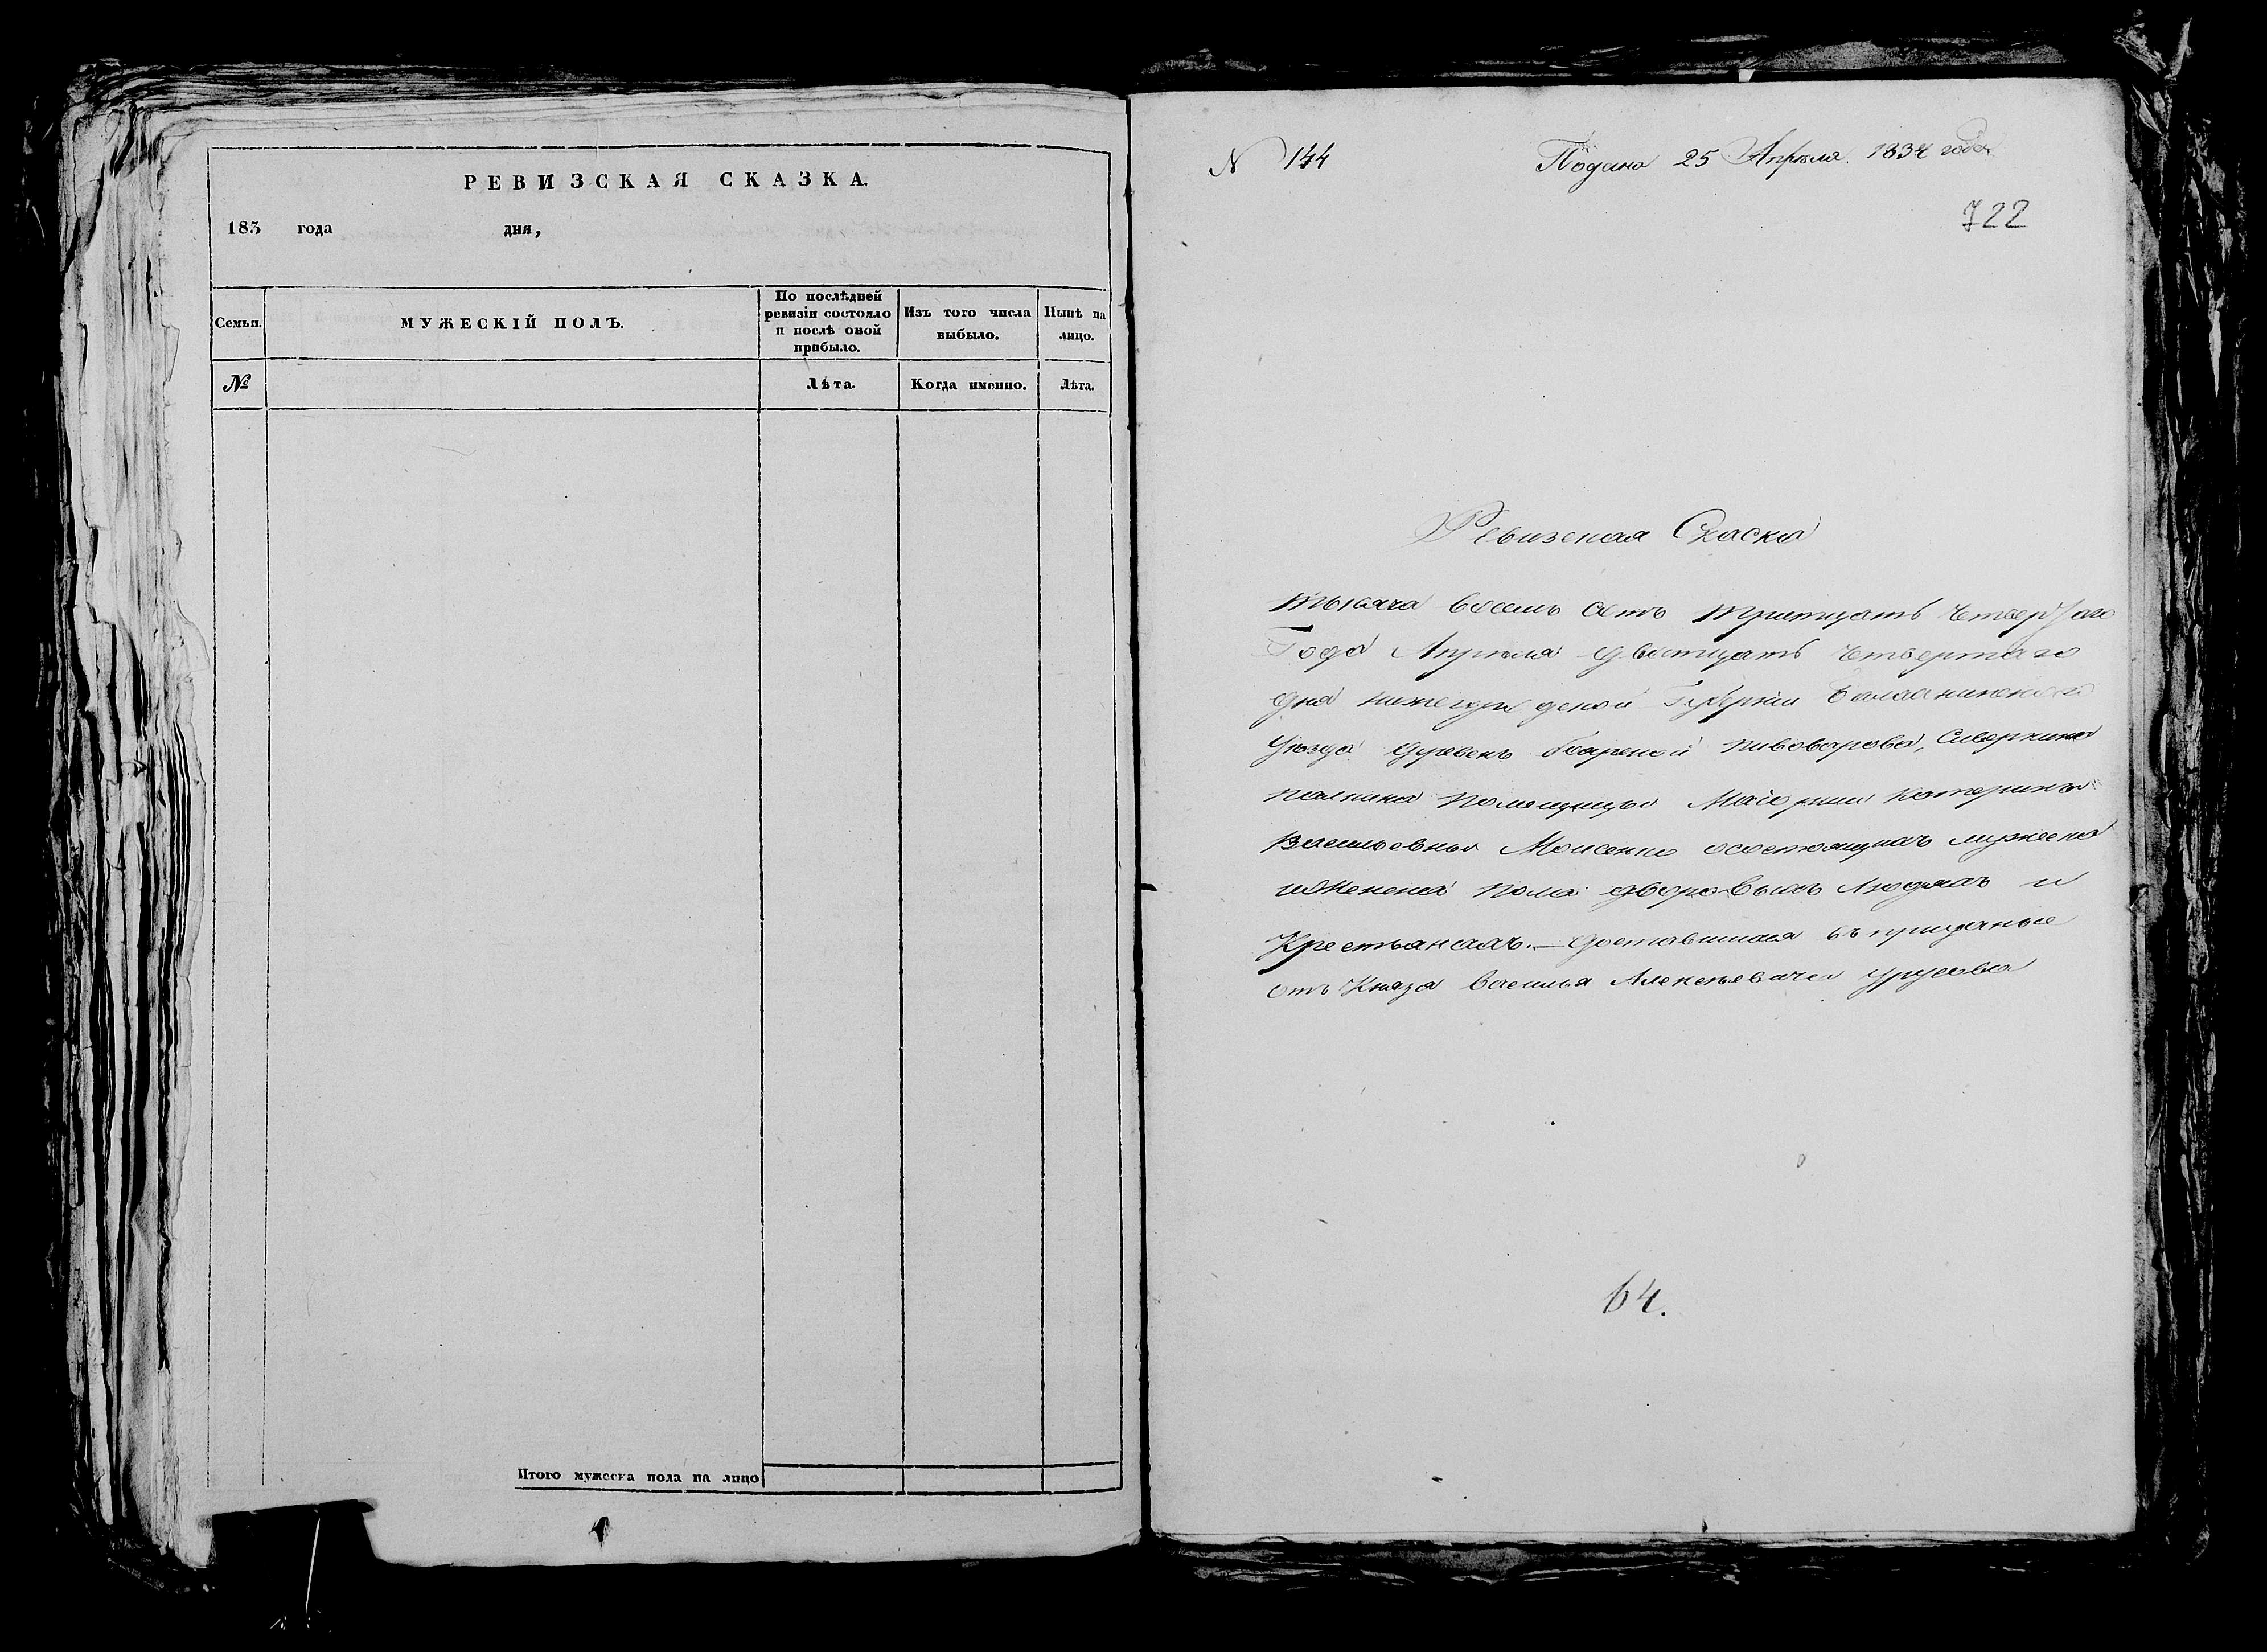 РЕВИЗСКАЯ СКАЗКА.
183 года дня,
Семьи.
МУЖЕСКІЙ ПОЛЪ.
По послѣдней
ревизіи состояло
и послѣ оной
прибыло.
Изъ того числа
выбыло.
Нынѣ на
лицо.
№
Лѣта.
Когда именно.
Лѣта.
Итого мужеска пола на лицо
N 144
Подана 25 Апрѣля 1834 года
722
Ревизская Скаска
тысяча восемь сотъ тритцать четвертаго
Года Апрѣля дватцать четвертаго
дня нижегородской Губерніи Балахнинскаго
уѣзда деревень пивоварова,
помещицы Маіорши Катерины
Васильевны состоящихъ мужеска
иженска пола дворовымъ людямъ и
Крестьянамъ.— Доставшихся въ приданые
отъ Князя Василья Алексѣевича Урусова
64.